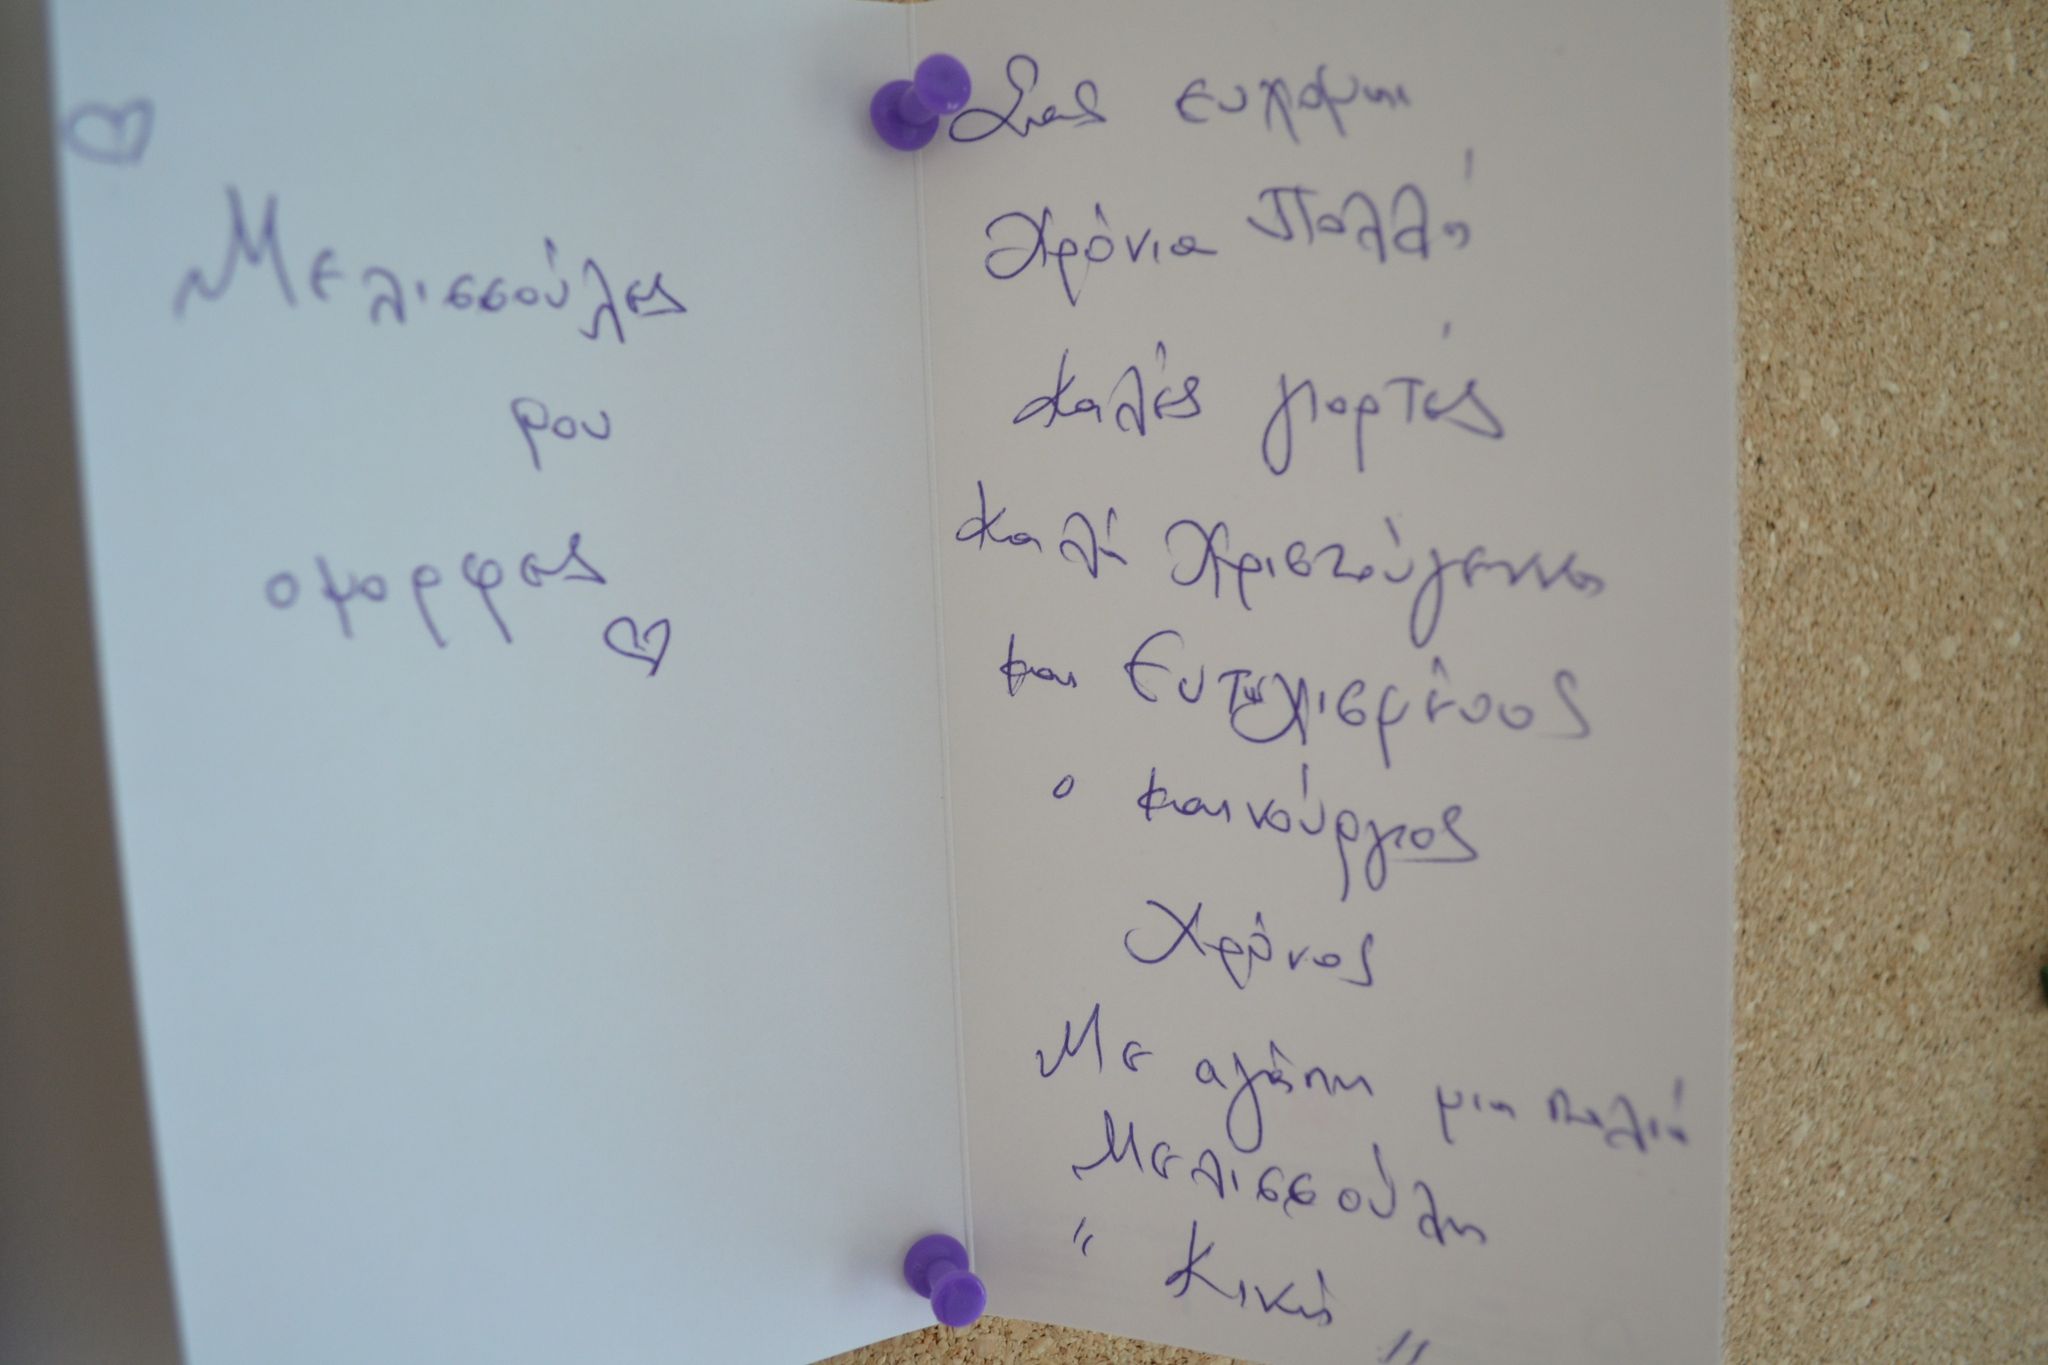 Μελισσούλες
μου
ομορφες
Σας ευχομαι
Χρόνια Πολλά
Καλές γιορτές
Καλά Χριστούγεννα
και Ευτυχισμένος
ο καινούργιος
Χρόνος
Με αγάπη μια παλιά
Μελισσούλα
"Κική"